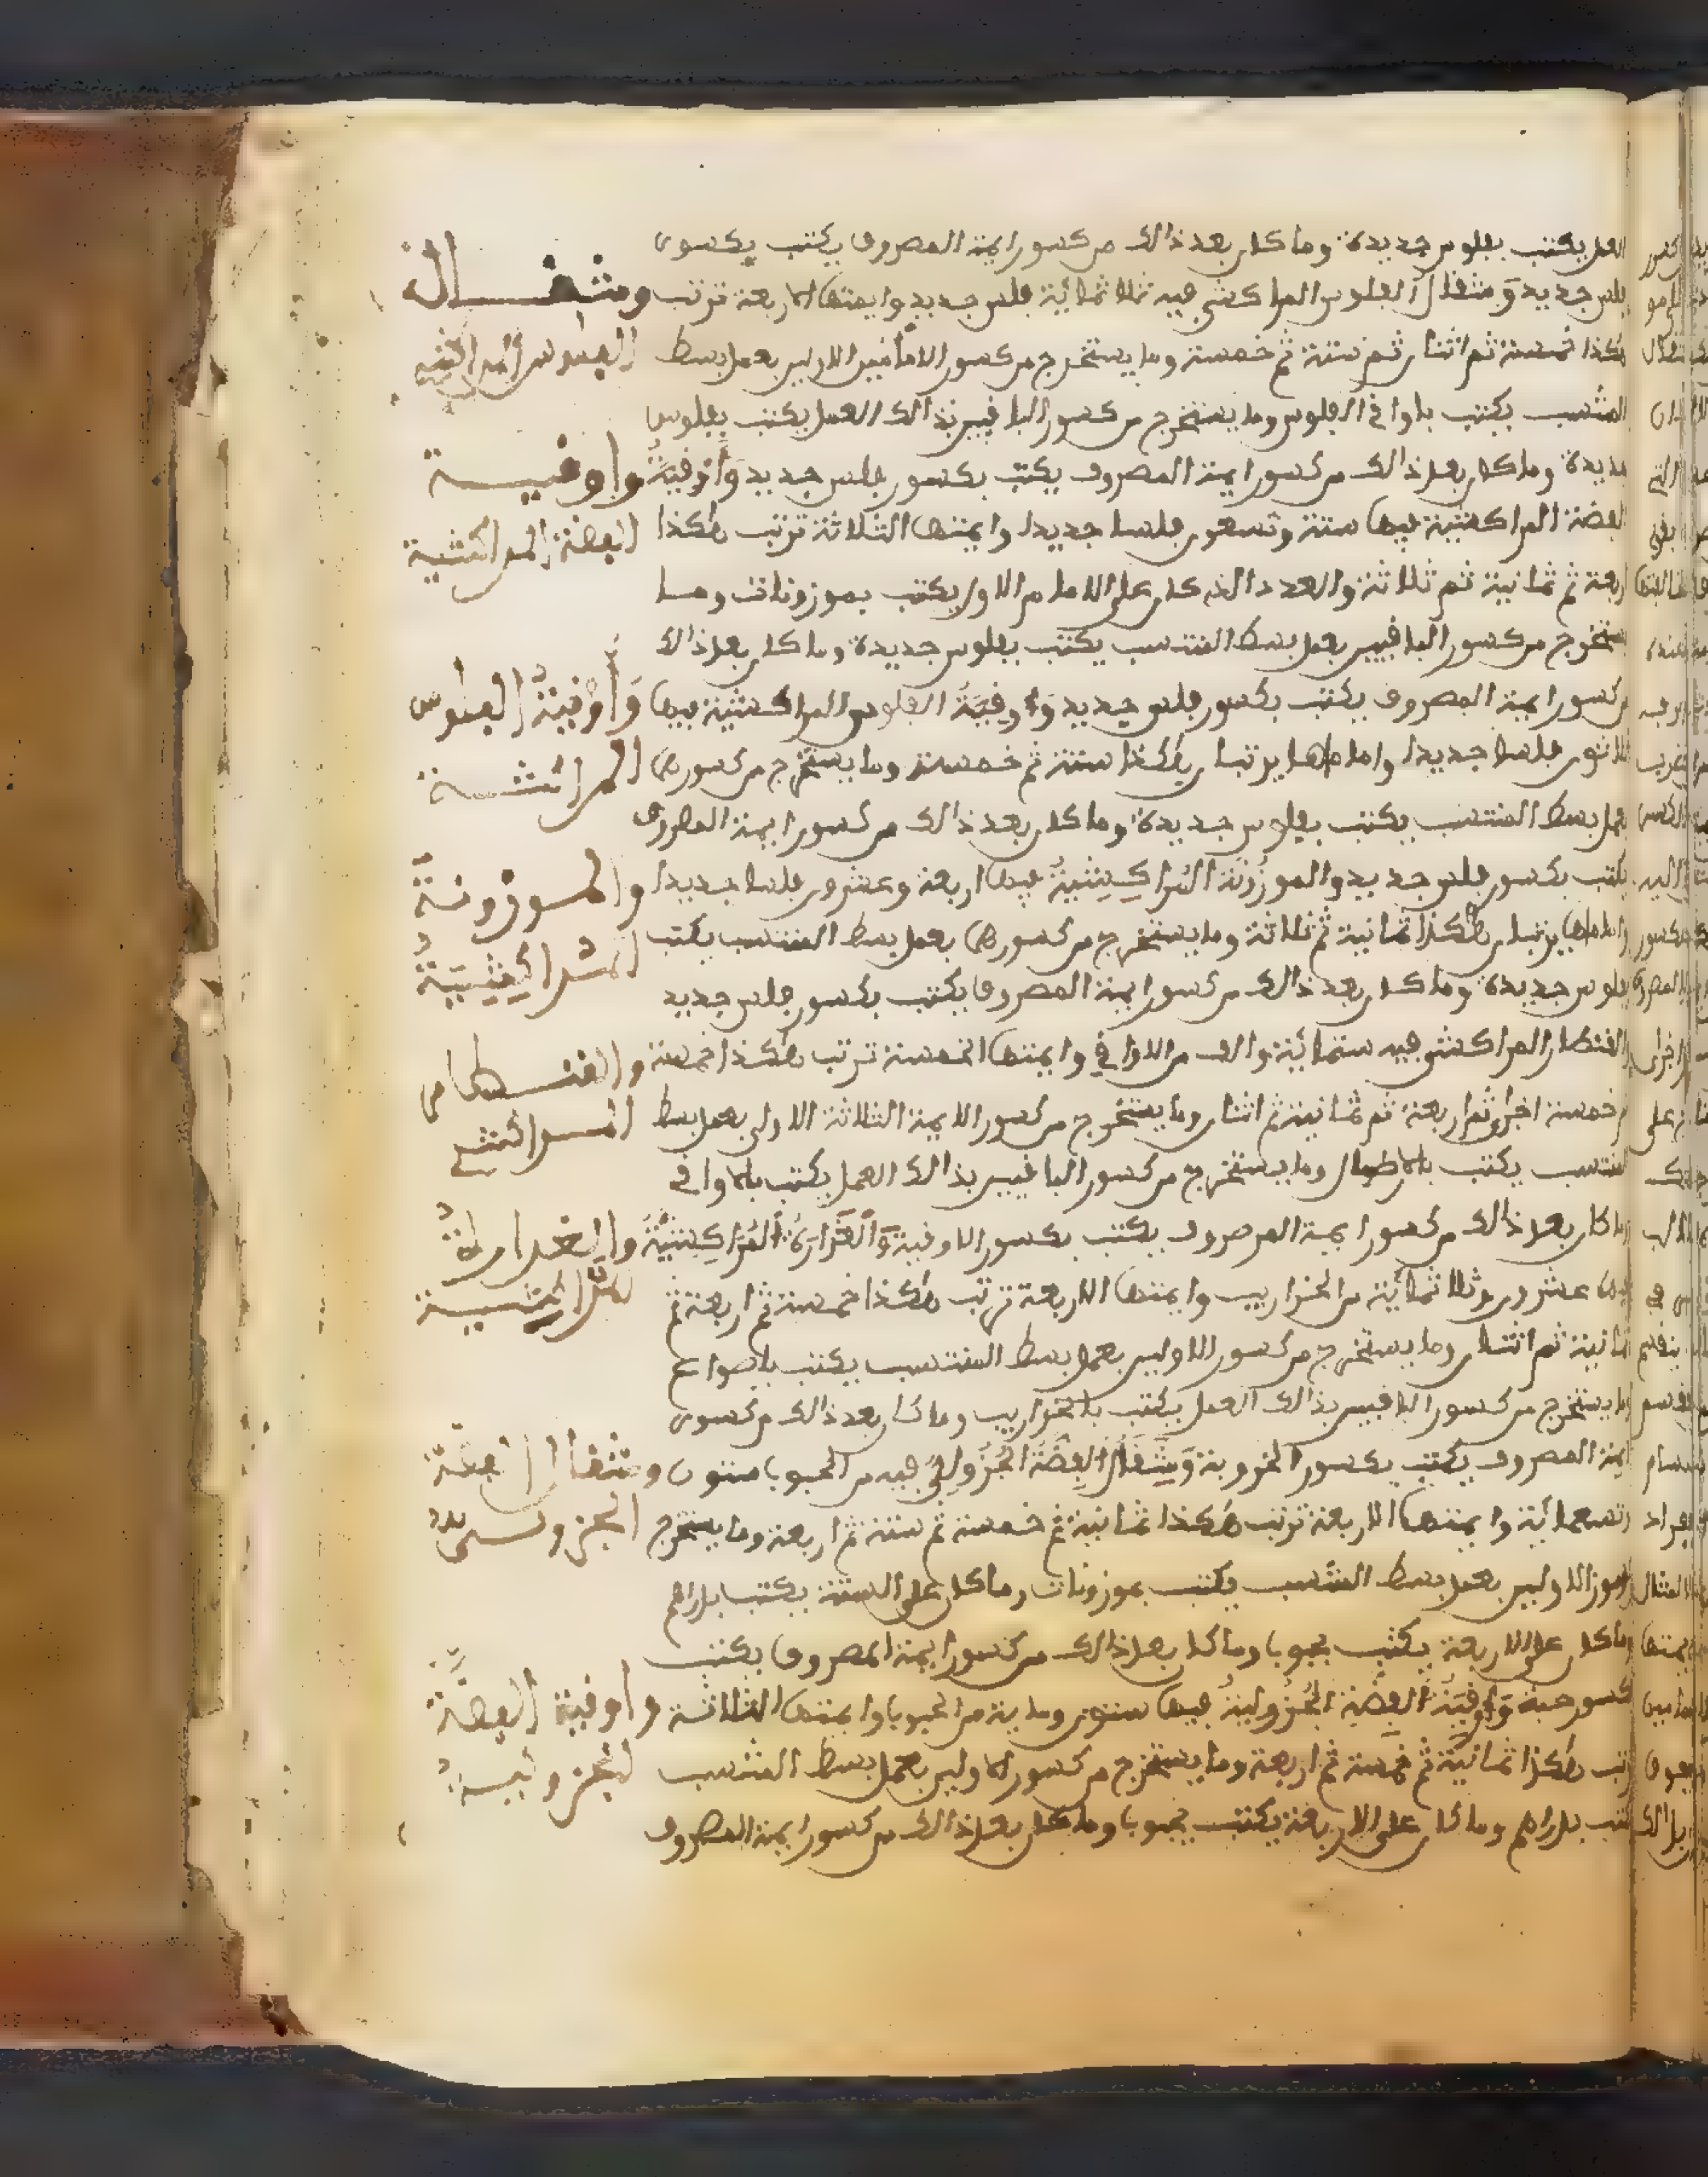 العمل يكتب بفلوس جديدة وما كان بعد ذالك من كسور ايمة المصروف يكتب بكسور
فلس جديد وَمثقال الفلوس المراكشي فيه ثلاثمائية فلس جديد وايمتها الاربعة ترتب
هكذا خمسة ثم اثنان ثم ستة ثم خمسة وما يستخرج من كسور الامامين الاولين بعمل بسط
المنتسب يكتب باواقي الفلوس وما يستخرج من كسور الباقيين بذالك العمل يكتب بفلوس
جديدة وما كان بعد ذالك من كسور ايمة المصروف يكتب بكسور فلس جديد وَأُوقِيَةُ
الفضة المراكشية فيها ستة وتسعون فلسا جديدا وايمتها الثلاثة ترتب هكذا
اربعة ثم ثمانية ثم ثلاثة والعدد الذي كان على الامام الاول يكتب بموزونات وما
يستخرج من كسور الباقيين بعمل بسط المنتسب يكتب بفلوس جديدة وما كان بعد ذالك
من كسور ايمة المصروف يكتب بكسور فلس جديد وَاُوقِيَةُ الفلوس المراكشية فيها
ثلاثون فلسا جديدا واماماها يرتبان هكذا ستة ثم خمسة وما يستخرج من كسورها
بعمل بسط المنتسب يكتب بفلوس جديدة وما كان بعد ذالك من كسور ايمة المصروف
يكتب بكسور فلس جديد والموزُونَة المُراكِشِيَةُ فيها اربعة وعشرون فلسا جديدا
واماماها يرتبان هكذا ثمانية ثم ثلاثة وما يستخرج من كسورها بعمل بسط المنتسب يكتب
بفلوس جديدة وما كان بعد ذالك من كسور ايمة المصروف يكتب بكسور فلس جديد
والقنطار المراكشي فيه ستمائية والف من الاواقي وايمتها الخمسة ترتب هكذا خمسة
ثم خمسة اخرى ثم اربعة ثم ثمانية ثم اثنان وما يستخرج من كسور الايمة الثلاثة الاولى بعمل بسط
المنتسب يكتب بالارطال وما يستخرج من كسور الباقيين بذالك العمل يكتب بالاواقي
وما كان بعد ذالك من كسور ايمة المصروف يكتب بكسور الاوقية وَالغَرَارَةُ المُرَاكِشِيَّةُ
فيها عشرون وثلاثمائية من الخراريب وايمتها الاربعة ترتب هكذا خمسة ثم اربعة ثم
ثمانية ثم اثنان وما يستخرج من كسور الاولين بعمل بسط المنتسب يكتب باصواع
وما يستخرج من كسور الباقيين بذالك العمل يكتب بالخراريب وما كان بعد ذالك من كسور
ايمة المصروف يكتب بكسور الخروبة وَمِثقَالُ الفِضَّةِ الجُزُولِيُّ فيه من الحبوبا ستون
وتسعمائية وايمتها الاربعة ترتب هكذا ثمانية ثم خمسة ثم ستة ثم اربعة وما يستخرج
من الاولين بعمل بسط المنتسب يكتب بموزونات وما كان على الستة يكتب بدراهم
وما كان على الاربعة يكتب بحبوبا وما كان بعد ذالك من كسور ايمة المصروف يكتب
بكسور حبة وَاوقِيَةُ الفِضَّةِ الجُزُولِيَةُ فيها ستون وماية من الحبوبا وايمتها الثلاثة
ترتب هكذا ثمانية ثم خمسة ثم اربعة وما يستخرج من كسور الاولين بعمل بسط المنتسب
يكتب بدراهم وما كان على الاربعة يكتب بحبوبا وما كان بعد ذالك من كسور ايمة المصروف
ومثقال
الفلوس المراكشي
واوقية
الفضة المراكشية
وَأُوقِيَةُ الفلوس
المراكشية
والموزونةُ
المراكِشِيَةُ
والقنطار
المراكشي
والغرارةُ
المراكشية
ومثقال الفضة
الجزولي
واوقية الفضَّة
الجزولية